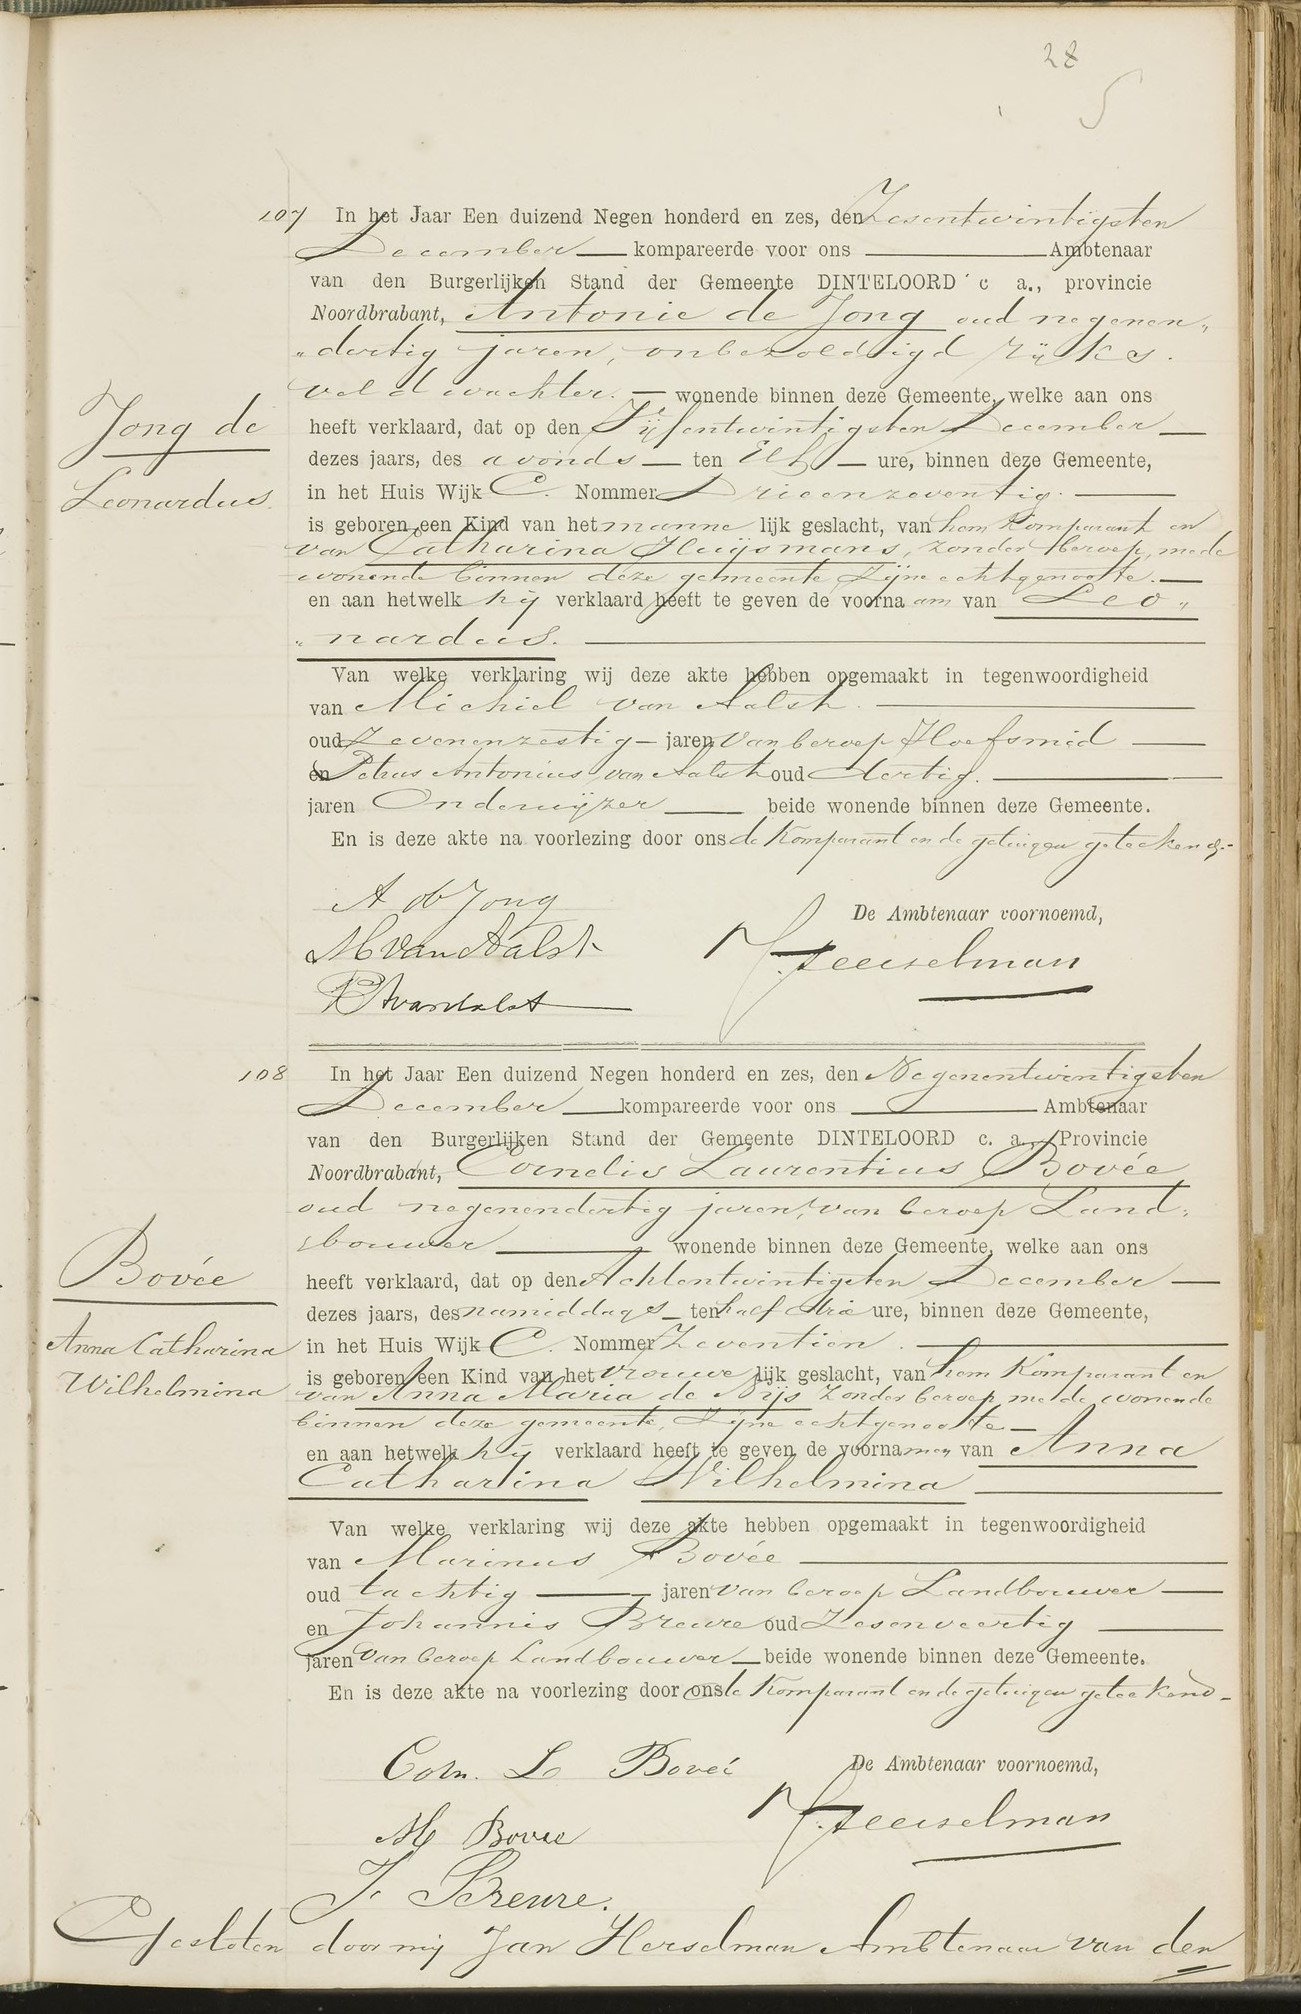 28
5
107 In het Jaar Een duizend Negen honderd en zes, den Zesentwintigsten
December kompareerde voor ons Ambtenaar
van den Burgerlijken Stand der Gemeente DINTELOORD c a., provincie
Noordbrabant, Antonie de Jong oud negenen„
„dertig jaren, onbezoldigd rijks.
veldwachter. wonende binnen deze Gemeente, welke aan ons
Jong de
heeft verklaard, dat op den Vijfentwintigsten December
dezes jaars, des avonds ten Elf ure, binnen deze Gemeente,
Leonardus.
in het Huis Wijk C. Nommer Drieenzeventig.
is geboren een Kind van het mannelijk geslacht, van hem Komparant en
van Catharina Huijsmans, zonder beroep, mede
wonende binnen deze gemeente Zijne echtgenoote.
en aan hetwelk hij verklaard heeft te geven de voornaam van Leo„
„nardus.
Van welke verklaring wij deze akte hebben opgemaakt in tegenwoordigheid
van Michiel van Aalst.
oud Zevenenzestig jaren van beroep Hoefsmid
en Petrus Antonius van Aalst oud dertig.
jaren Onderwijzer beide wonende binnen deze Gemeente.
En is deze akte na voorlezing door ons de Komparant en de getuigen geteekend.
A de Jong
De Ambtenaar voornoemd,
M van Aalst
J. Heerselman
P A van Aalst
108 In het Jaar Een duizend Negen honderd en zes, den Negenentwintigsten
December kompareerde voor ons Ambtenaar
van den Burgerlijken Stand der Gemeente DINTELOORD c. a., Provincie
Noordbrabant, Cornelis Laurentius Bovée
oud negenendertig jaren, van beroep Land„
bouwer wonende binnen deze Gemeente, welke aan ons
Bovée
heeft verklaard, dat op den Achtentwintigsten December
dezes jaars, des namiddags ten half drie ure, binnen deze Gemeente,
Anna Catharina
in het Huis Wijk C. Nommer Zeventien.
Wilhelmina
is geboren een Kind van het vrouwelijk geslacht, van hem Komparant en
van Anna Maria de Nijs zonder beroep mede wonende
binnen deze gemeente, Zijne echtgenoote
en aan hetwelk hij verklaard heeft te geven de voornamen van Anna
Catharina Wilhelmina
Van welke verklaring wij deze akte hebben opgemaakt in tegenwoordigheid
van Marinus Bovée
oud tachtig jaren van beroep Landbouwer
en Johannis Breure oud Zesenveertig
jaren van beroep Landbouwer beide wonende binnen deze Gemeente.
En is deze akte na voorlezing door ons de Komparant en de getuigen geteekend
Corn. L Bovée
De Ambtenaar voornoemd,
M Bovee
J. Heerselman
J. Breure.
Gesloten door mij Jan Herselman Ambtenaar van den